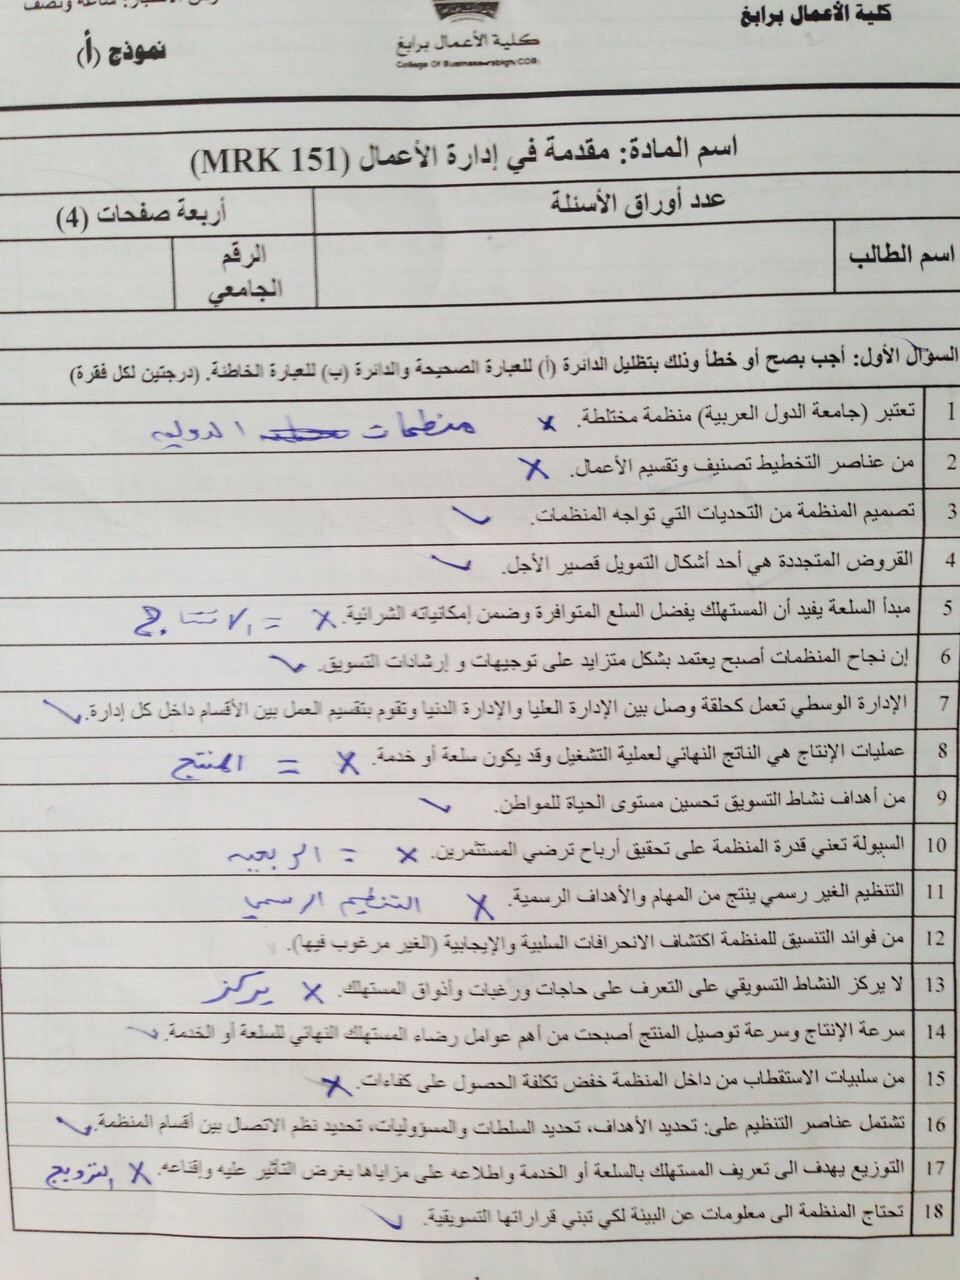 كلية الأعمال برابغ
كلية الأعمال برابغ
نموذج (أ)
اسم المادة: مقدمة في إدارة الأعمال (MRK 151)
عدد أوراق الأسئلة أربعة صفحات (4)
اسم الطالب الرقم الجامعي
السؤال الأول: أجب بصح أو خطأ وذلك بتظليل الدائرة (أ) للعبارة الصحيحة والدائرة (ب) للعبارة الخاطئة. (درجتين لكل فقرة)
1 تعتبر (جامعة الدول العربية) منظمة مختلطة. x منظمات الدوليه
2 من عناصر التخطيط تصنيف وتقسيم الأعمال. x
3 تصميم المنظمة من التحديات التي تواجه المنظمات. ✓
4 القروض المتجددة هي أحد أشكال التمويل قصير الأجل. ✓
5 مبدأ السلعة يفيد أن المستهلك يفضل السلع المتوافرة وضمن إمكانياته الشرائية. x = الانتاج
6 إن نجاح المنظمات أصبح يعتمد بشكل متزايد على توجيهات و إرشادات التسويق. ✓
7 الإدارة الوسطي تعمل كحلقة وصل بين الإدارة العليا والإدارة الدنيا وتقوم بتقسيم العمل بين الأقسام داخل كل إدارة. ✓
8 عمليات الإنتاج هي الناتج النهائي لعملية التشغيل وقد يكون سلعة أو خدمة. x = المنتج
9 من أهداف نشاط التسويق تحسين مستوى الحياة للمواطن. ✓
10 السيولة تعني قدرة المنظمة على تحقيق أرباح ترضي المستثمرين. x = الربحيه
11 التنظيم الغير رسمي ينتج من المهام والأهداف الرسمية. x التنظيم الرسمي
12 من فوائد التنسيق للمنظمة اكتشاف الانحرافات السلبية والإيجابية (الغير مرغوب فيها).
13 لا يركز النشاط التسويقي على التعرف على حاجات ورغبات وأذواق المستهلك. x يركز
14 سرعة الإنتاج وسرعة توصيل المنتج أصبحت من أهم عوامل رضاء المستهلك النهائي للسلعة أو الخدمة. ✓
15 من سلبيات الاستقطاب من داخل المنظمة خفض تكلفة الحصول على كفاءات. x
16 تشتمل عناصر التنظيم على: تحديد الأهداف، تحديد السلطات والمسؤوليات، تحديد نظم الاتصال بين أقسام المنظمة. ✓
17 التوزيع يهدف الى تعريف المستهلك بالسلعة أو الخدمة واطلاعه على مزاياها بغرض التأثير عليه وإقناعه. x الترويج
18 تحتاج المنظمة الى معلومات عن البيئة لكي تبني قراراتها التسويقية. ✓